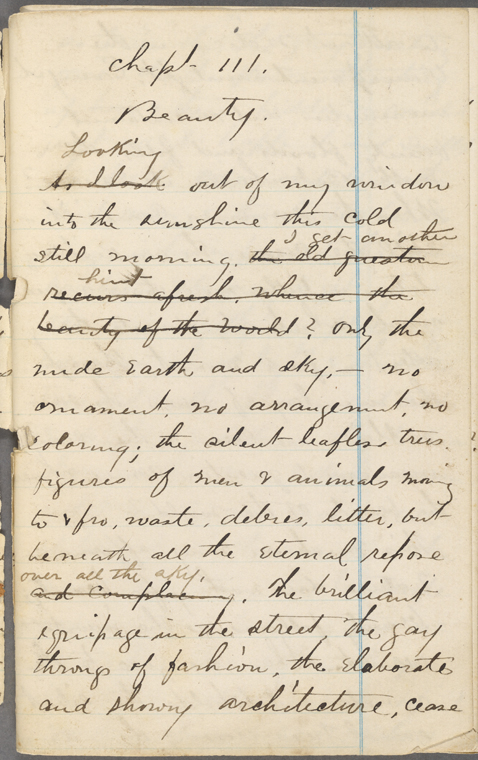 Chapt III.
Beauty.
Looking
As I look out of my window
into the sunshine this cold
I get another
still morning, the old question
hint
recurs afresh. Whence the
beauty of the World? Only the
nude Earth and sky,— no
ornament, no arrangement, no
coloring; the silent leafless trees.
figures of men & animals moving
to & fro, waste, debres, litter, but
beneath all the Eternal repose
over all the sky.
and complacency. The brilliant
equipage in the street, the gay
throngs of fashion, the elaborate
and showy architecture, cease